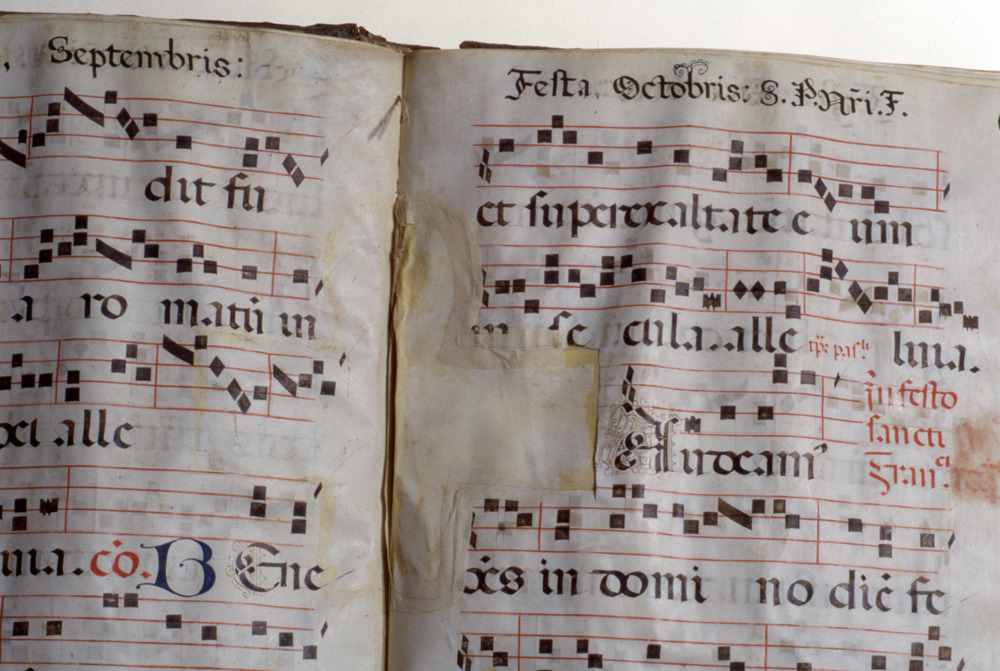 Septembris:
dit fu
a ro matū in
xi alle
co. B Ene
Festa. Octobris: S. P. Nr̄i. F.
et superexaltate e um
in se cula. alle lu ia.
In festo
sancti
Fran.ci
udeam⁹
es in domi no diē fe